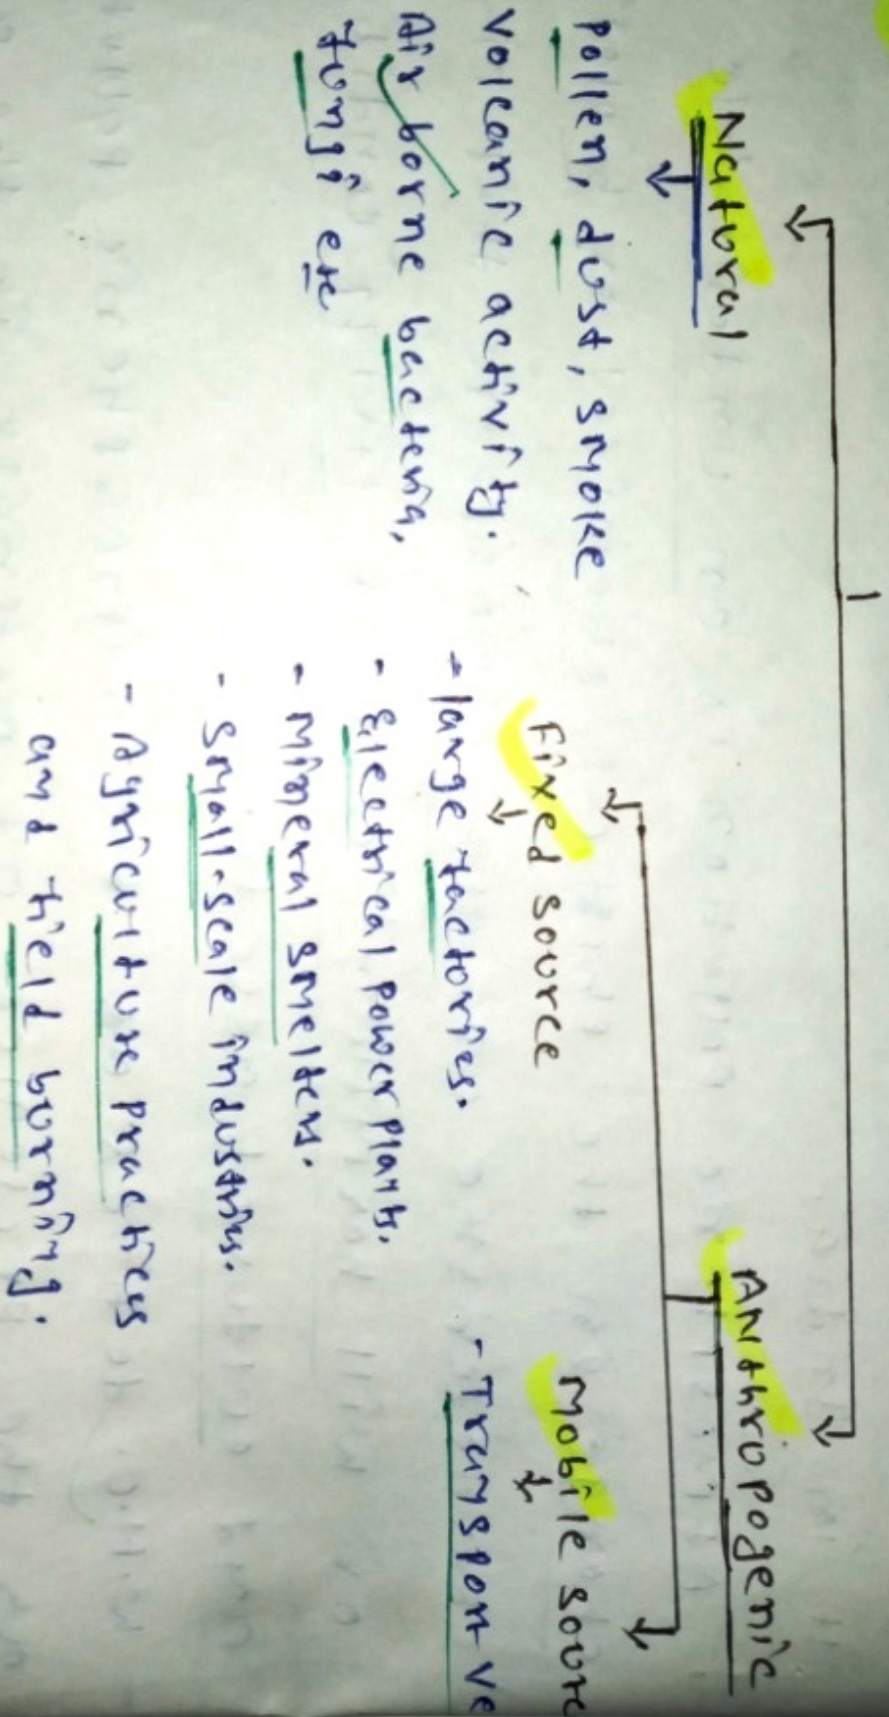 Natural
Pollen, dust, smoke
volcanic activity.
Air borne bacteria,
fungi etc
Anthropogenic
Fixed source
- large factories.
- Electrical power plants.
- Mineral smelters.
- Small-scale industries.
- Agriculture practices
and field burning.
Mobile sourc
- Transport ve